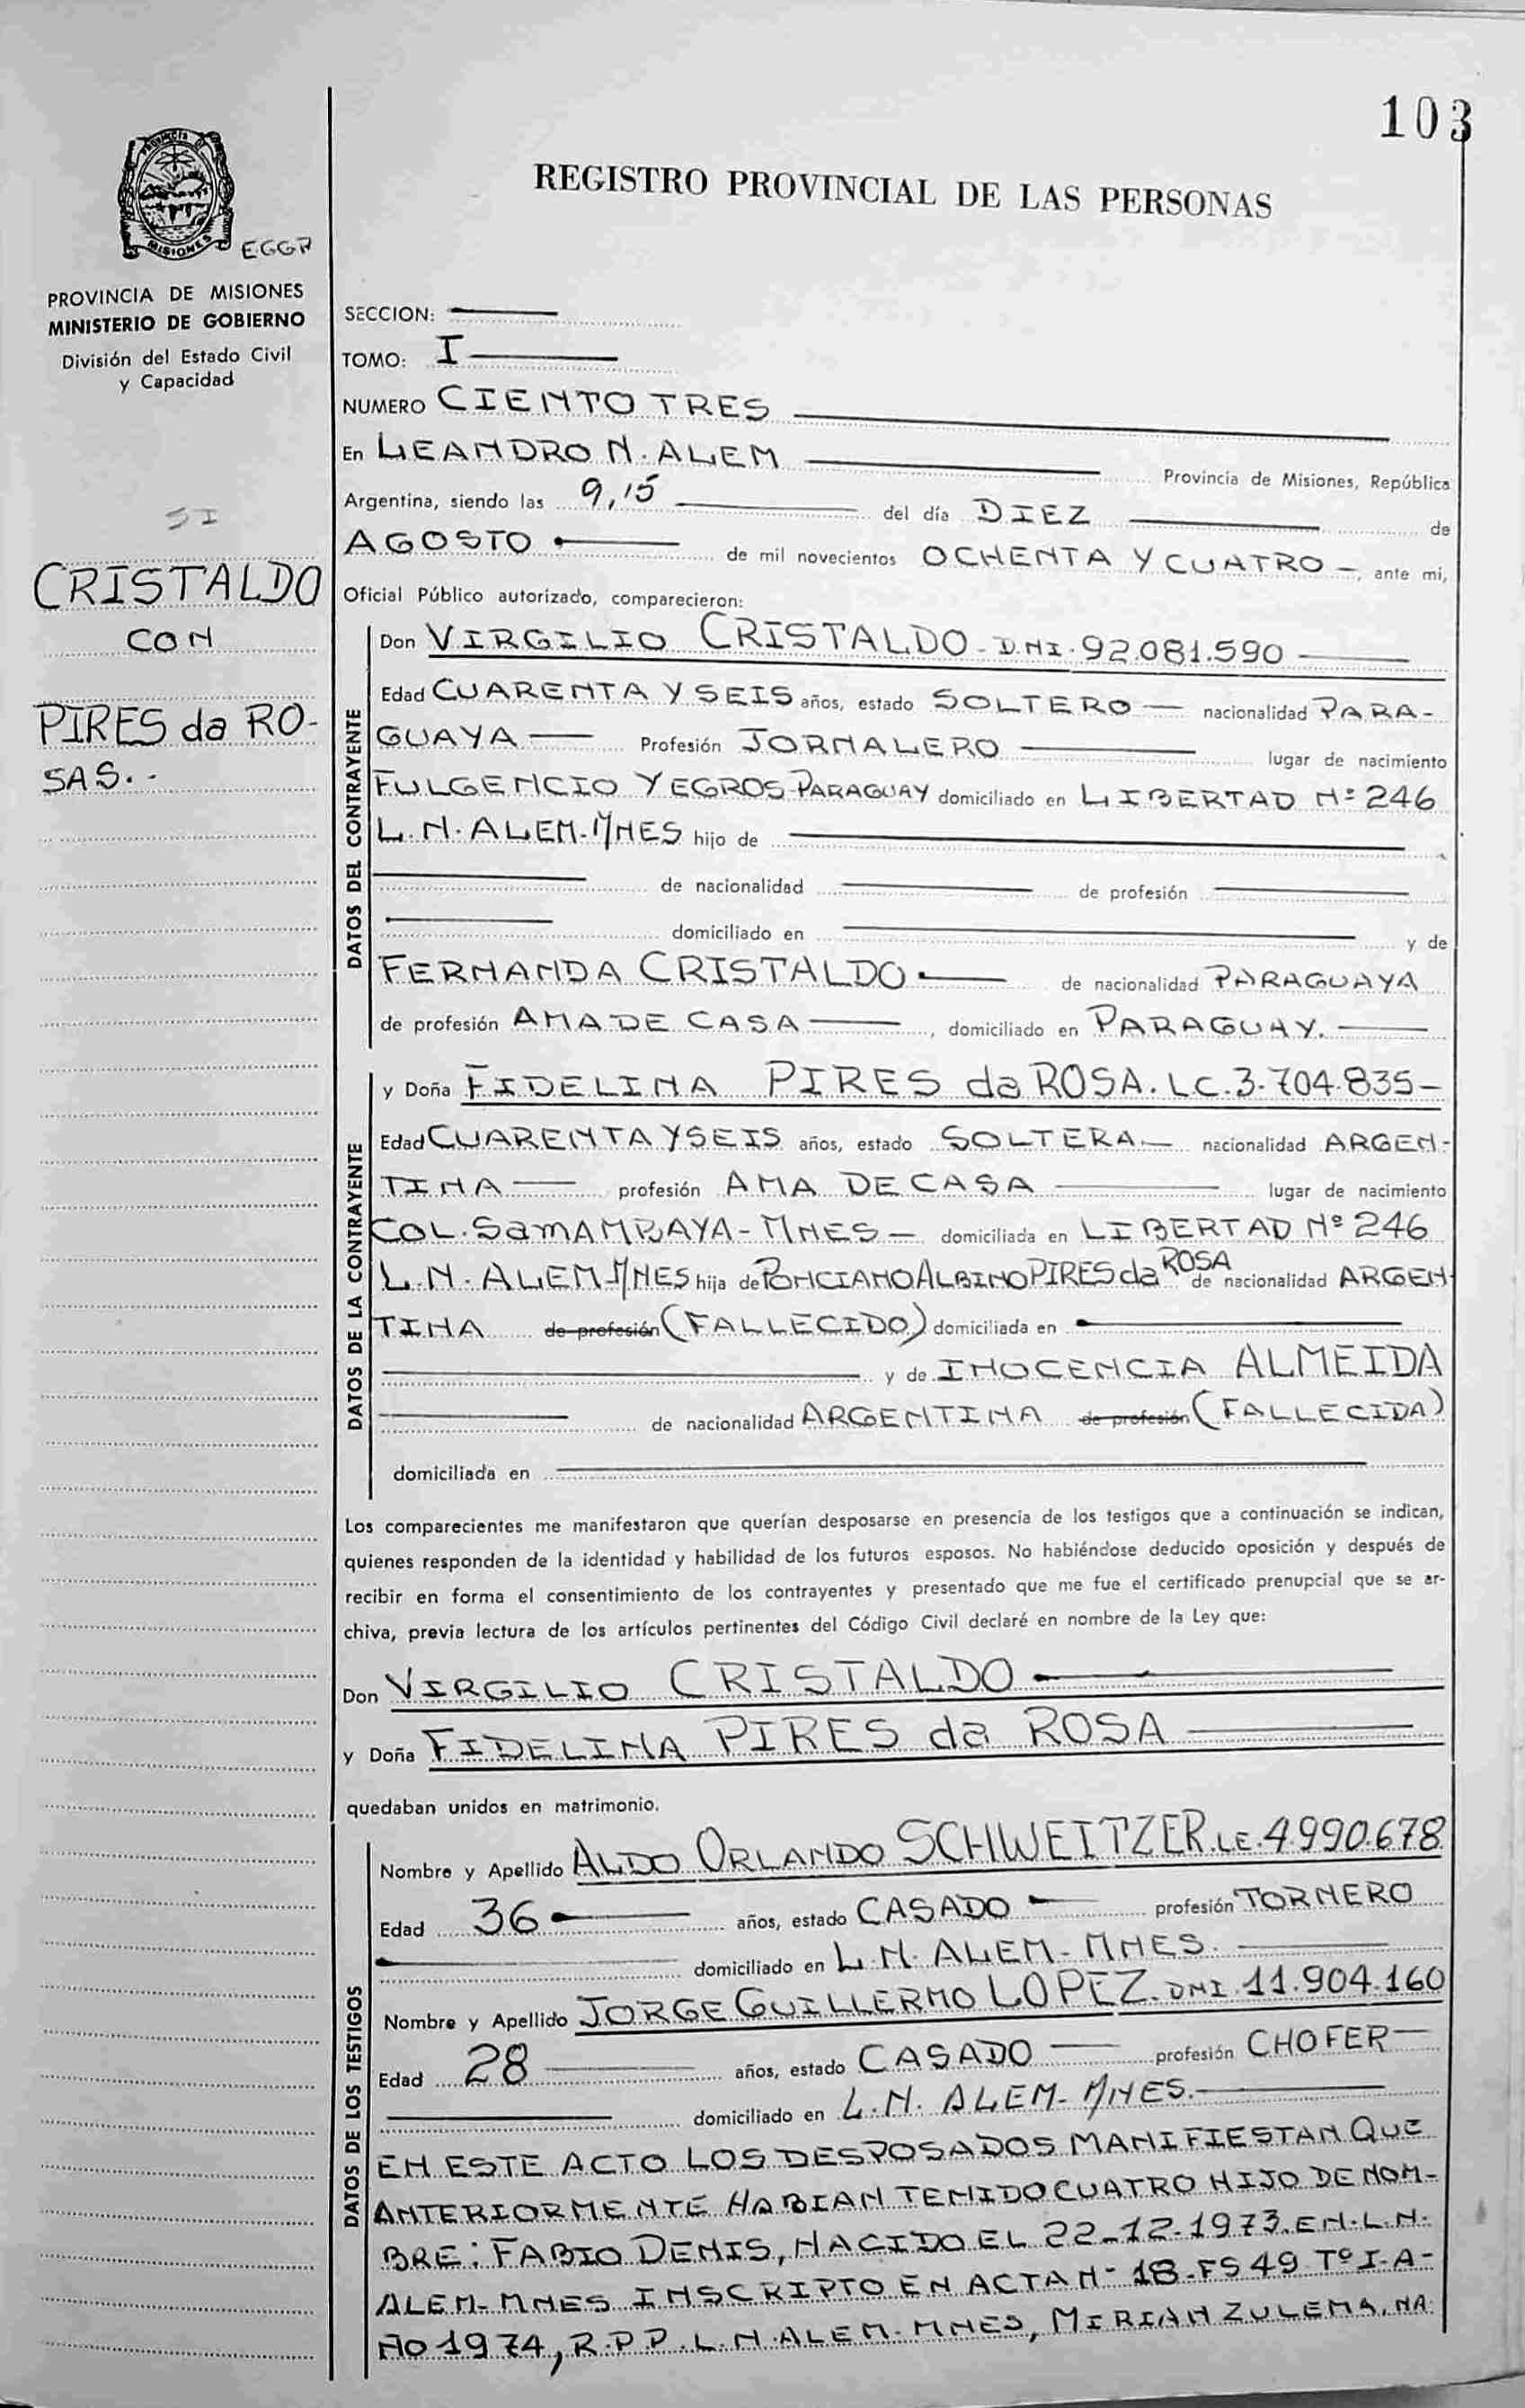 103
REGISTRO PROVINCIAL DE LAS PERSONAS
PROVINCIA DE MISIONES
EGGR
PROVINCIA DE MISIONES
MINISTERIO DE GOBIERNO
División del Estado Civil
y Capacidad
SI
CRISTALDO
CON
PIRES da RO-
SAS.-
SECCION:
TOMO: I
NUMERO CIENTO TRES
En LEANDRO N. ALEM Provincia de Misiones, República
Argentina, siendo las 9,15 del día DIEZ de
AGOSTO de mil novecientos OCHENTA Y CUATRO -, ante mi,
Oficial Público autorizado, comparecieron:
DATOS DEL CONTRAYENTE
Don VIRGILIO CRISTALDO - DNI. 92.081.590
Edad CUARENTA Y SEIS años, estado SOLTERO nacionalidad PARA-
GUAYA Profesión JORNALERO lugar de nacimiento
FULGENCIO YEGROS-PARAGUAY domiciliado en LIBERTAD Nº 246
L.N. ALEM-MNES hijo de
de nacionalidad de profesión
domiciliado en y de
FERNANDA CRISTALDO de nacionalidad PARAGUAYA
de profesión AMA DE CASA, domiciliado en PARAGUAY.
DATOS DE LA CONTRAYENTE
y Doña FIDELINA PIRES da ROSA. LC. 3.704.835-
Edad CUARENTA Y SEIS años, estado SOLTERA nacionalidad ARGEN-
TINA profesión AMA DE CASA lugar de nacimiento
COL. SamAMBAYA-MNES domiciliada en LIBERTAD Nº 246
L.N. ALEM-MNES hija de PONCIANO ALBINO PIRES da ROSA de nacionalidad ARGEN
TINA de profesión (FALLECIDO) domiciliada en
y de INOCENCIA ALMEIDA
de nacionalidad ARGENTINA de profesión (FALLECIDA)
domiciliada en
Los comparecientes me manifestaron que querían desposarse en presencia de los testigos que a continuación se indican,
quienes responden de la identidad y habilidad de los futuros esposos. No habiéndose deducido oposición y después de
recibir en forma el consentimiento de los contrayentes y presentado que me fue el certificado prenupcial que se ar-
chiva, previa lectura de los artículos pertinentes del Código Civil declaré en nombre de la Ley que:
Don VIRGILIO CRISTALDO
y Doña FIDELINA PIRES da ROSA
quedaban unidos en matrimonio.
DATOS DE LOS TESTIGOS
Nombre y Apellido ALDO ORLANDO SCHWEITZER. LE. 4.990.678
Edad 36 años, estado CASADO profesión TORNERO
domiciliado en L.N. ALEM-MNES.
Nombre y Apellido JORGE GUILLERMO LOPEZ. DNI. 11.904.160
Edad 28 años, estado CASADO profesión CHOFER
domiciliado en L.N. ALEM-MNES.
EN ESTE ACTO LOS DESPOSADOS MANIFIESTAN QUE
ANTERIORMENTE HABIAN TENIDO CUATRO HIJO DE NOM-
BRE: FABIO DENIS, NACIDO EL 22-12-1973. EN. L.N.
ALEM-MNES INSCRIPTO EN ACTA N- 18-FS 49 Tº I-A-
ÑO 1974, R.P.P. L.N. ALEM-MNES, MIRIAN ZULEMA, NA